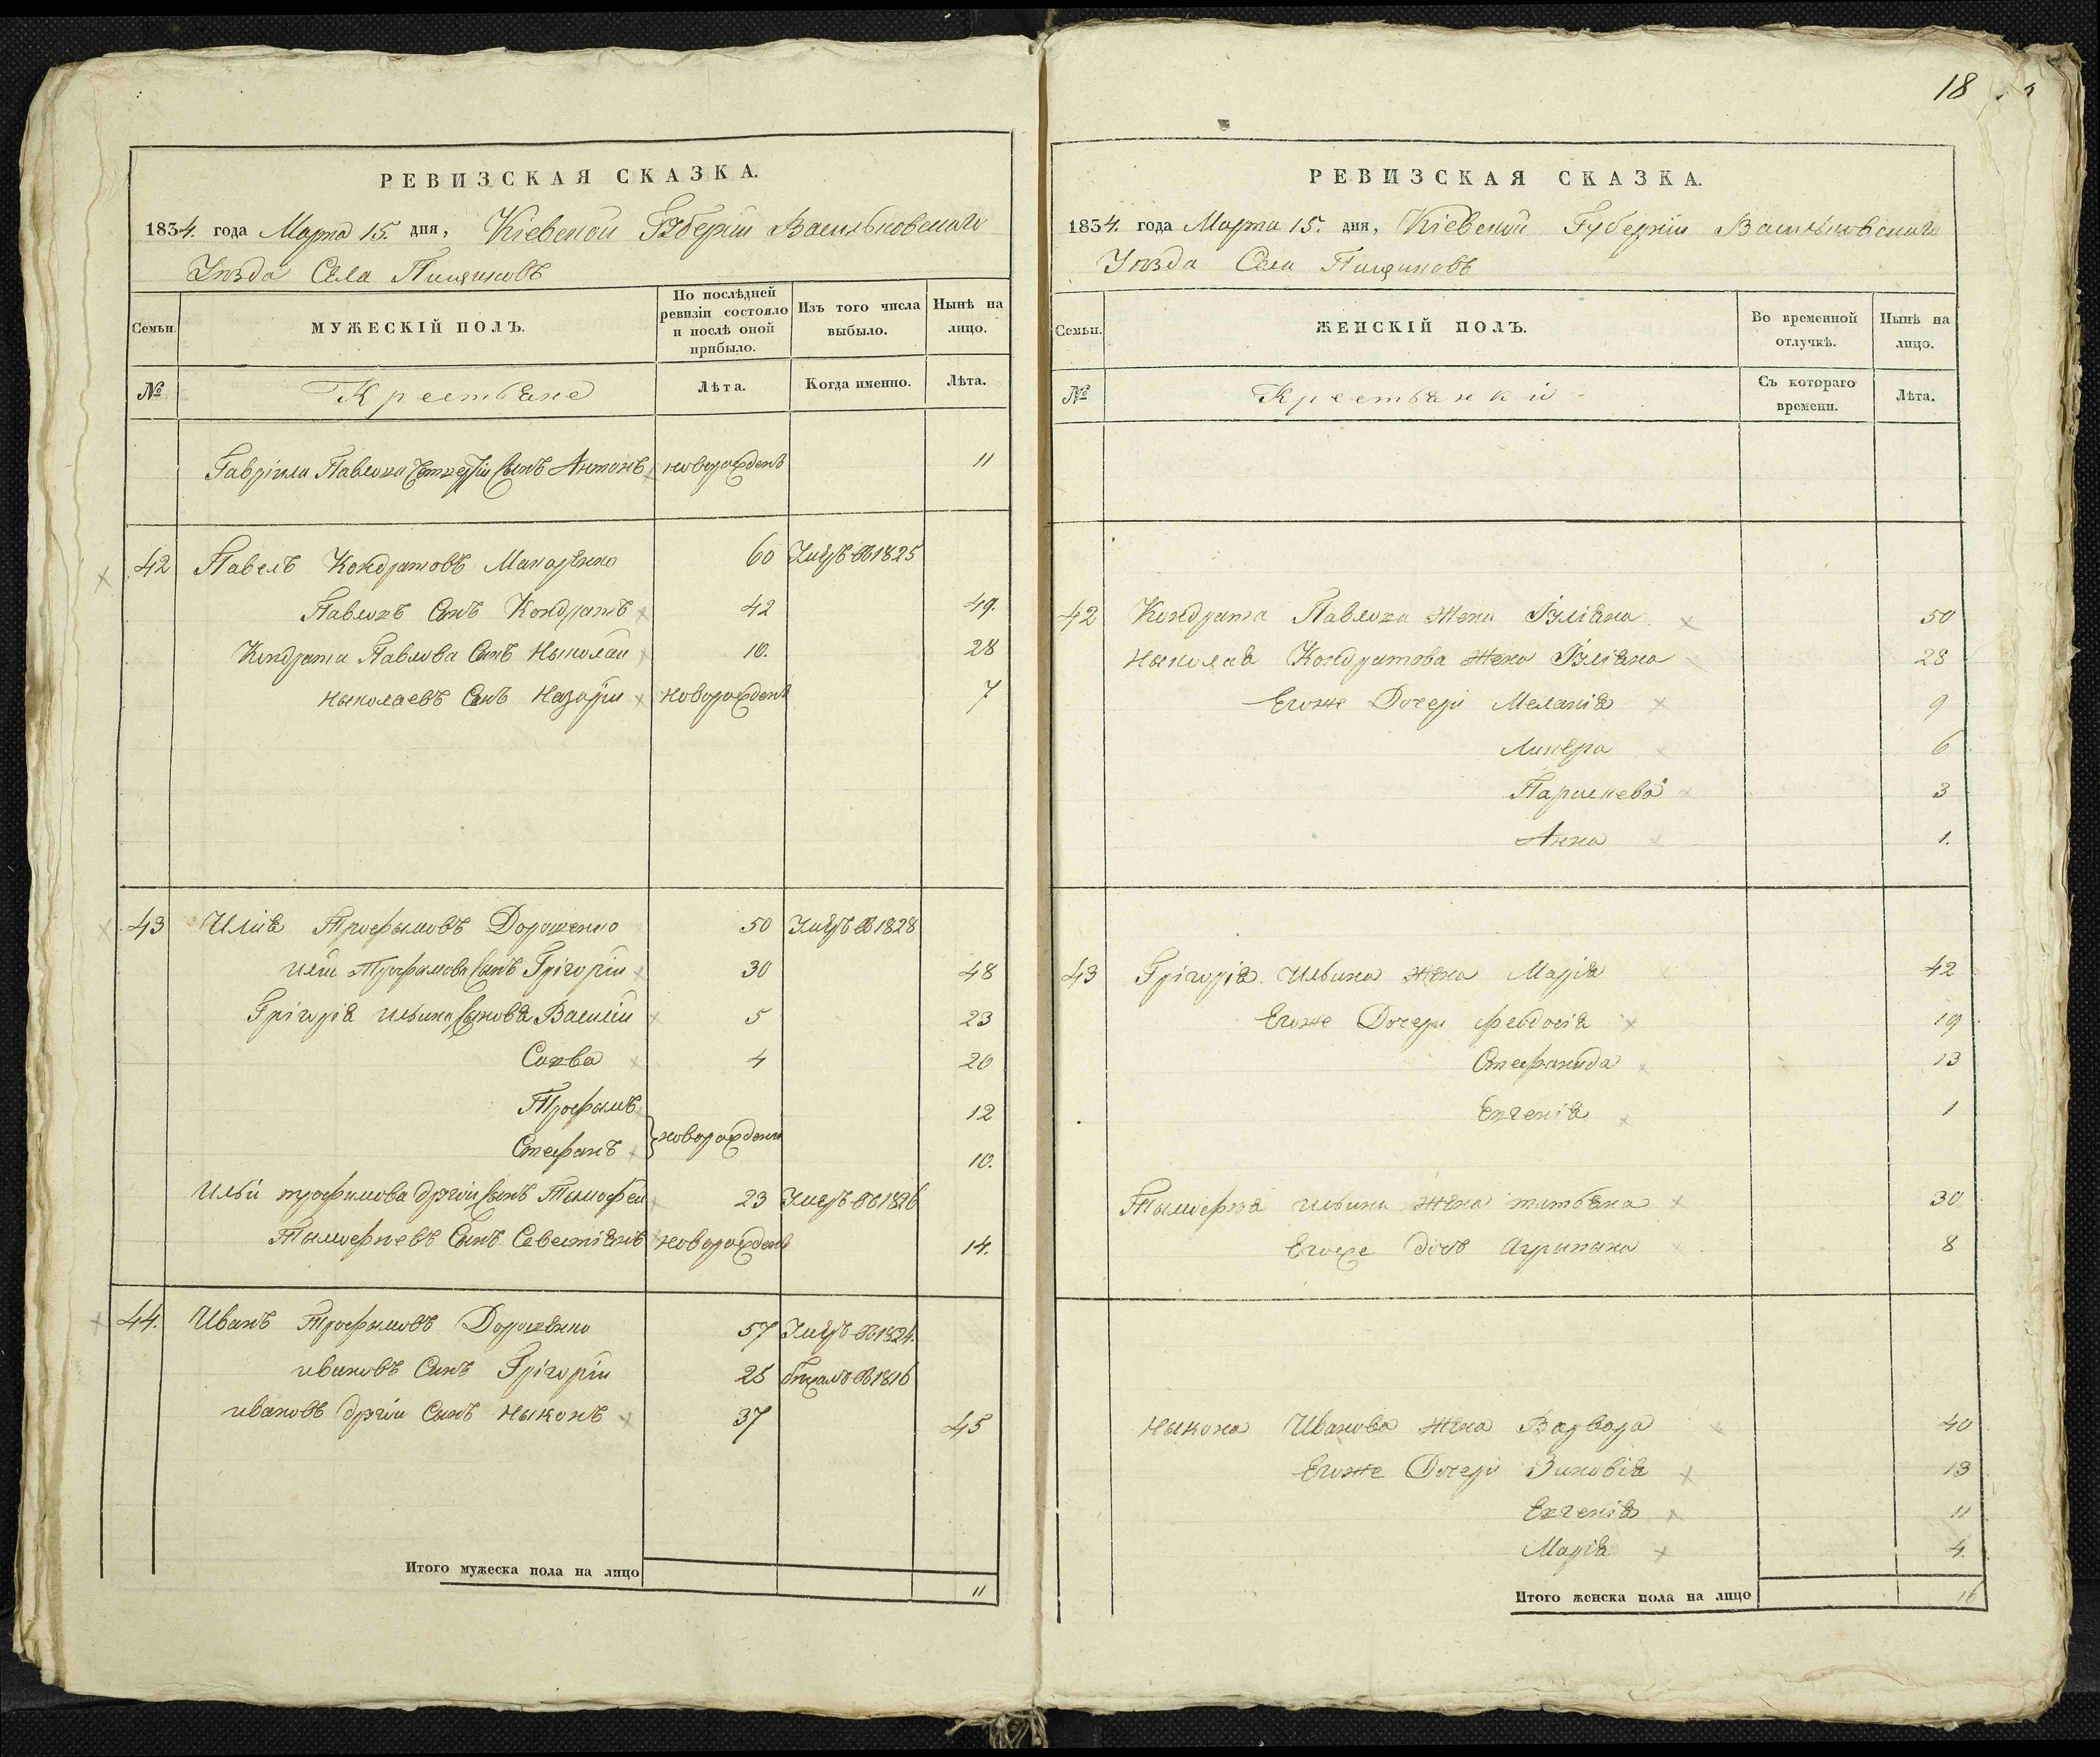 18
РЕВИЗСКАЯ СКАЗКА.
1834. года Марта 15. дня, Кіевской Губерніи Васильковскаго
Уѣзда Села Пищиковъ
Семьи.
МУЖЕСКІЙ ПОЛЪ.
По послѣдней ревизіи состояло и послѣ оной прибыло.
Изъ того числа выбыло.
Нынѣ на лицо.
№
Крестьяне
Лѣта.
Когда именно.
Лѣта.
Гавріила Павлова Сынъ Антонъ новорожденъ 11
42 Павелъ Кондратовъ Макаренко 60 Умеръ въ 1825
Павловъ Сынъ Кондратъ 42 49.
Кондрата Павлова Сынъ Ныколай 10. 28
Ныколаевъ Сынъ Назарій новорожденъ 7
43 Илия Трофымовъ Дорошенко 50 Умеръ въ 1828
Илїи Трофимова Сынъ Григорій 30 48
Григорія Ильина Сыновья Василій 5 23
Савва 4 20
Трофымъ 12
Стефанъ } новорождены 10.
Ильи трофимова другій Сынъ Тымофей 23 Умеръ въ 1826
Тымофѣевъ Сынъ Севестіянъ новорожденъ 14.
44. Иванъ Трофымовъ Дорошенко 57 Умеръ въ 1824.
ивановъ Сынъ Григорій 25 бѣжалъ въ 1816
ивановъ другій Сынъ Ныконъ 37 45
Итого мужеска пола на лицо 11
РЕВИЗСКАЯ СКАЗКА.
1834. года Марта 15. дня, Кіевской Губерніи Васильковскаго
Уѣзда Села Пищиковъ
Семьи.
ЖЕНСКІЙ ПОЛЪ.
Во временной отлучкѣ.
Нынѣ на лицо.
№
Крестьянки
Съ котораго времени.
Лѣта.
42 Кондрата Павлова жена Іуліана 50
Ныколая Кондратова жена Іуліана 28
Егоже Дочери Меланія 9
Ликера 6
Параскева 3
Анна 1.
43 Григорія Ильина жена Марія 42
Егоже Дочери Феодосія 19
Стефанида 13
Евгенія 1
Тымофѣя ильина жена татьяна 30
Егоже дочь Агрипына 8
Ныкона Иванова жена Варвара 40
Егоже Дочери Зиновія 13
Евгенія 11
Марія 4.
Итого женска пола на лицо 16